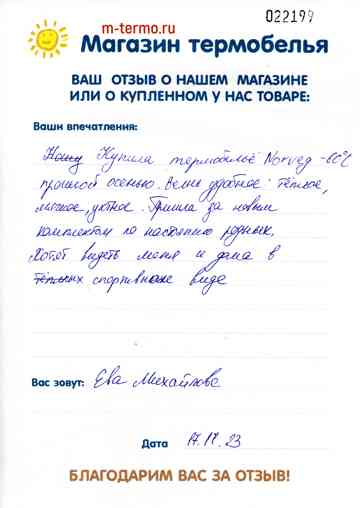 022199
m-termo.ru
Магазин термобелья
ВАШ ОТЗЫВ О НАШЕМ МАГАЗИНЕ
ИЛИ О КУПЛЕННОМ У НАС ТОВАРЕ:
Ваши впечатления:
Ношу Купила термобельё Norveg -60°C
прошлой осенью. Белье удобное: тёплое,
мягкое, уютное. Пришла за новым
комплектом по настоянию родных.
Хотят видеть меня и дома в
спортивном виде
Вас зовут: Ева Михайлова
Дата 17.11.23
БЛАГОДАРИМ ВАС ЗА ОТЗЫВ!